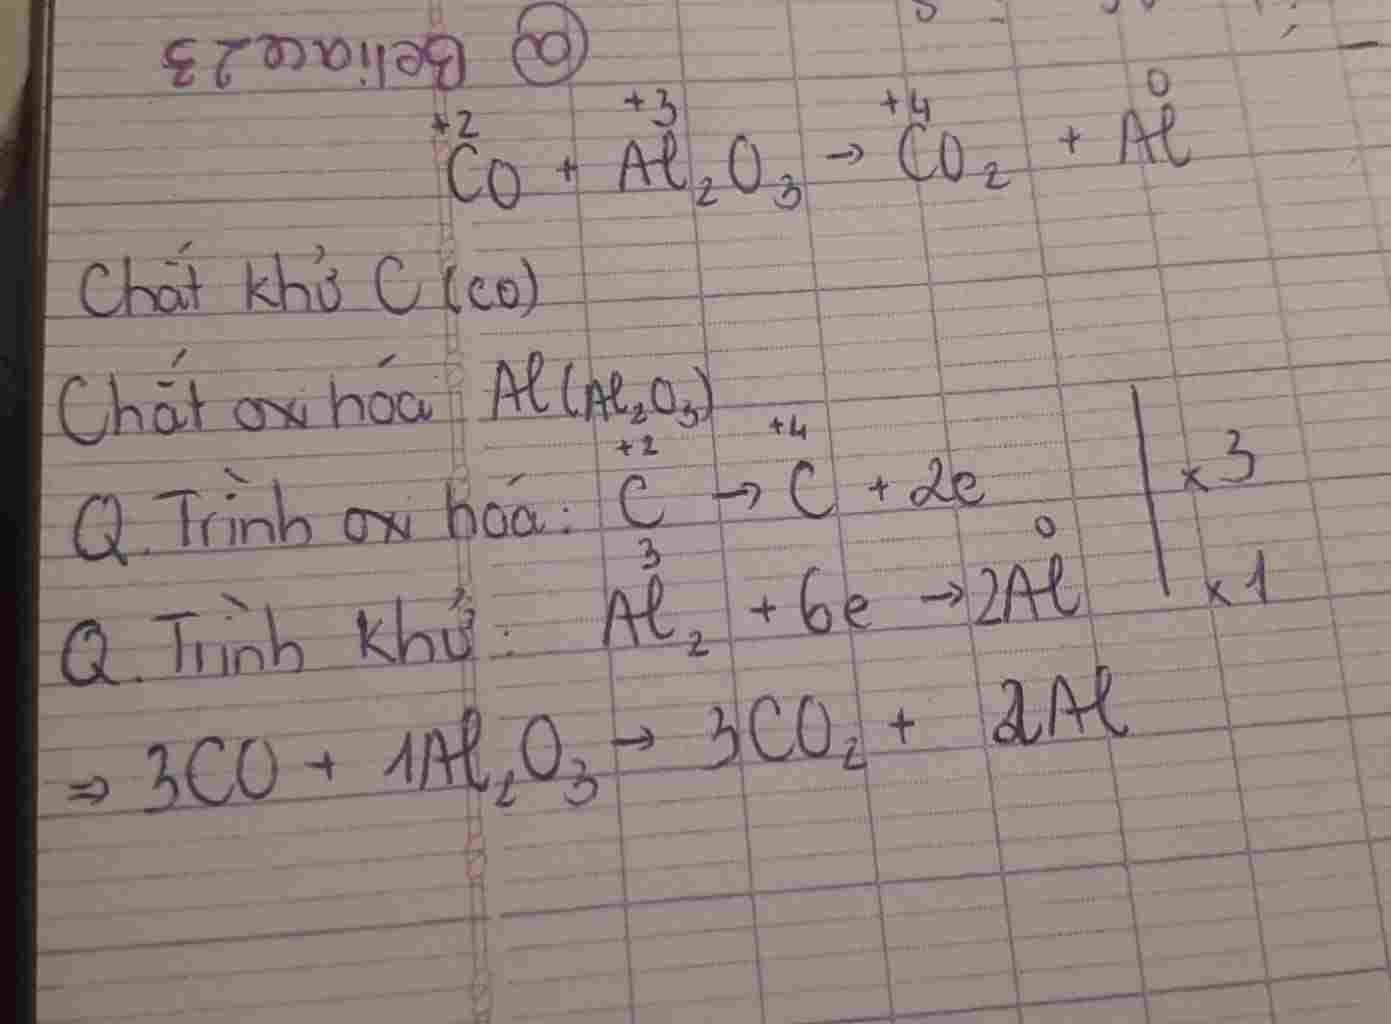 @ Beliace23
+2 +3 +4 0
CO + Al₂O₃ → CO₂ + Al
Chất khử C (CO)
Chất oxi hóa Al(Al₂O₃)
+2 +4
Q. Trình oxi hóa: C → C + 2e | x 3
3 0
Q. Trình khử: Al₂ + 6e → 2Al | x 1
⇒ 3CO + 1Al₂O₃ → 3CO₂ + 2Al